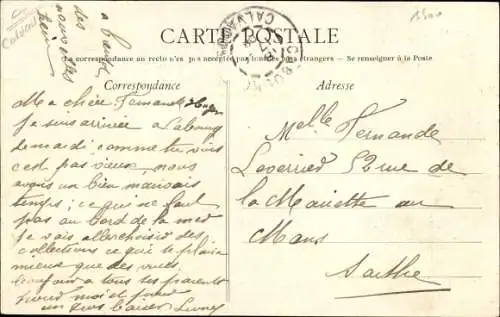 a bientôt
des
nouvelles
CARTE POSTALE
CALVADOS
La correspondance au recto n'est pas acceptée par tous les pays étrangers. — Se renseigner à la Poste
Correspondance
Adresse
Ma chère Fernande
Je suis arrivée a Cabourg
samedi comme tu vois
c'est pas vieux nous
avons un bien mauvais
temps, ce qui ne faut
pas au bord de la mer
Je vais aller choisir des
collections ce qui te plaira
mieux que des vues
Bonjour a tous tes parents
pour moi et pour
un gros baiser
Melle Fernande
52 rue de
la Mariette au
Mans
Sarthe